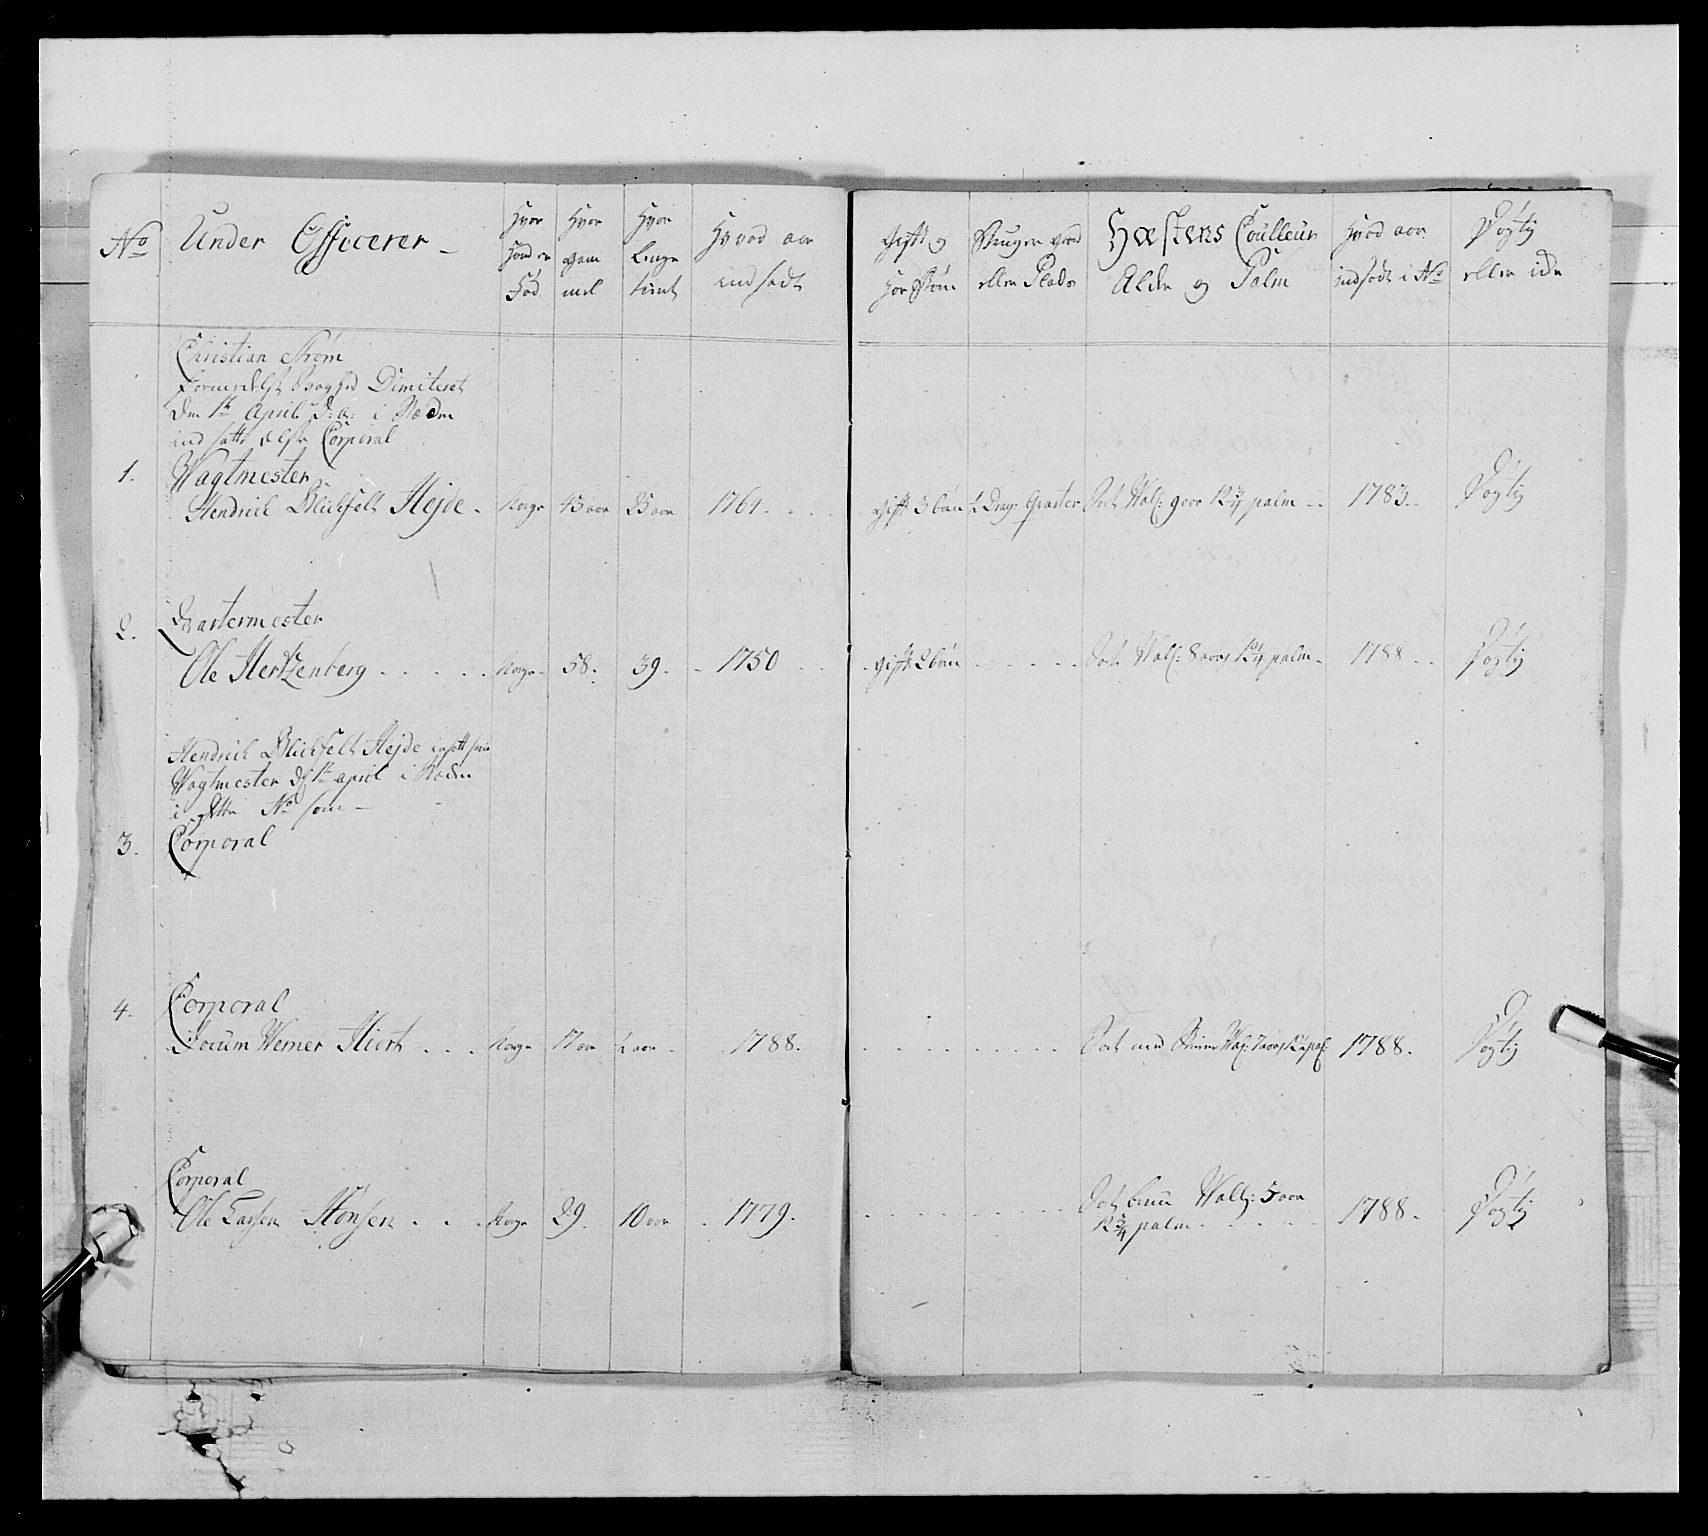 No
Under Officerer
Hvor
Hand er
Fød
Hvor
gam
mel
Hvor
Lenge
tient
Hvad aar
indsadt
Gift og
Har Børn
Bruger gaard
eller Plads
Hæstens Coulleur
Alder og Palm
Hvad aar
indsadt i No
Dygtig
eller icke
Christian Strøm
formedelst Svaghed Dimiteret
Den 1te April d: a: i Stæden
ind satt Corporal
1. Wagtmester
Hendrich Blichfelt Hejde. Norge 45 aar 25 aar 1764. Gift 3 børn Drag: Qvarter Sort Wal: 9 aar 12 3/4 palm 1783. Dygtig
2. Qvartermester
Ole Hertzenberg Norge 58. 39. 1750 Gift 2 børn Sort Wal: 8 aar palm 1788 Dygtig
Hendrich Blichfelt Hejde
Wagtmester 1te april i Stæden
i dette No som
3. Corporal
4. Corporal
Jocum Werner Hiort Norge 17 aar aar 1788. Sort Wal: 7 aar 1788. Dygtig
Corporal
Ole Larsen Hønsen Norge 29. 10 aar 1779. Sort Wall: 5 aar
12 3/4 palm 1788. Dygtig